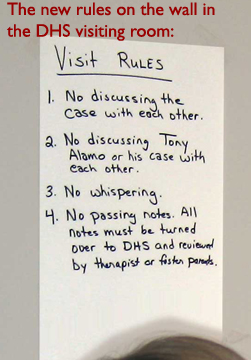 The new rules on the wall in
the DHS visiting room:
Visit Rules
1. No discussing the
case with each other.
2. No discussing Tony
Alamo or his case with
each other.
3. No whispering.
4. No passing notes. All
notes must be turned
over to DHS and reviewed
by therapist or foster parents.